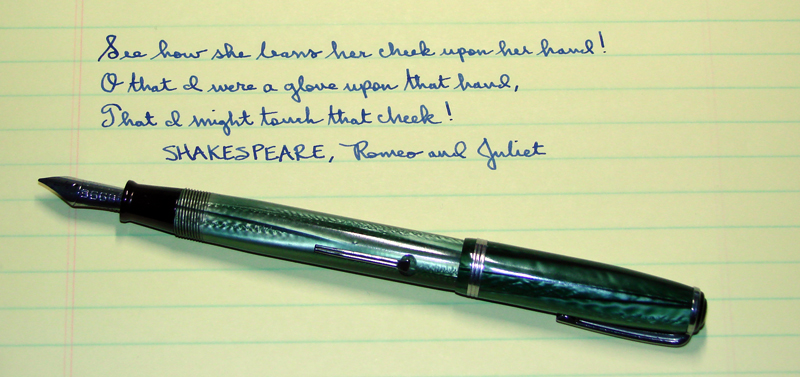 See how she leans her cheek upon her hand!
O that I were a glove upon that hand,
That I might touch that cheek!
SHAKESPEARE, Romeo and Juliet